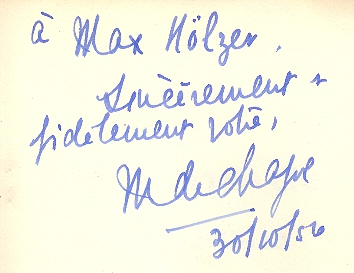 à Max Hölzer,
Sincèrement +
fidèlement votre,
30/10/56